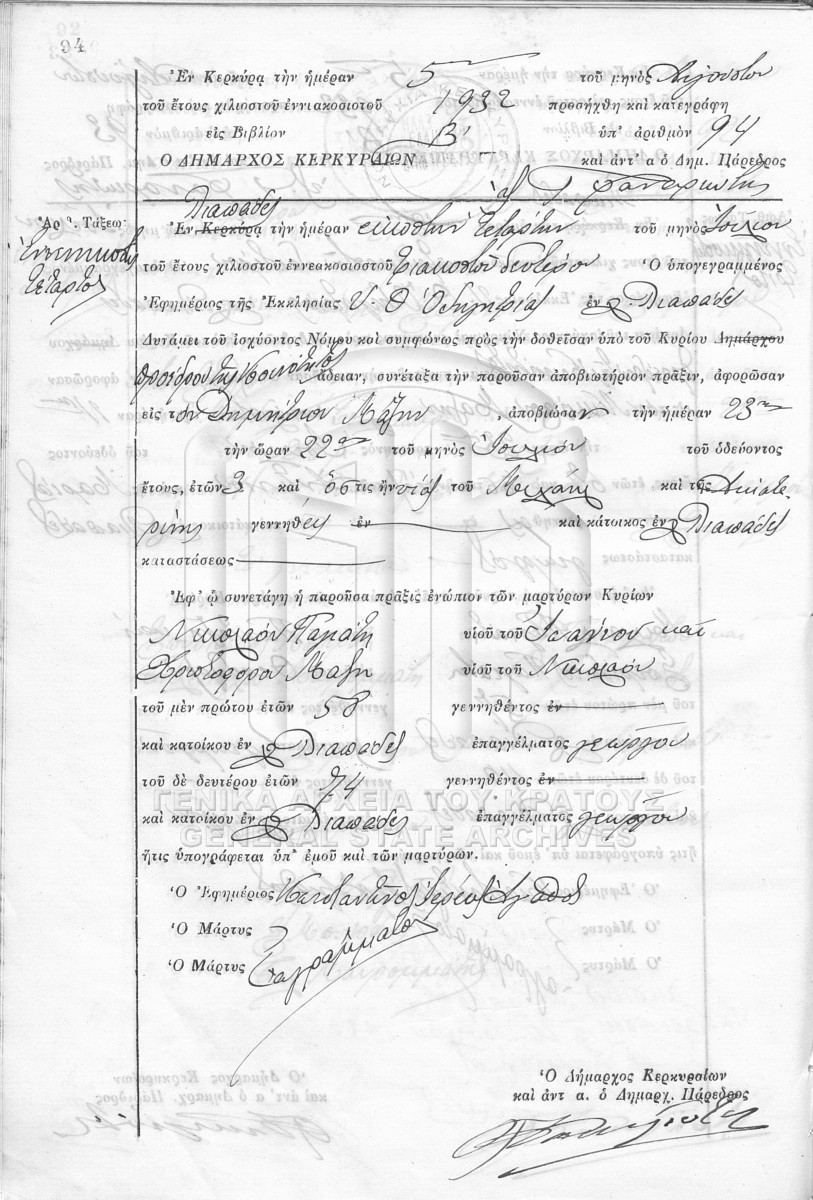 94
Ἐν Κερκύρᾳ τὴν ἡμέραν 5 τοῦ μηνὸς Αὐγούστου
τοῦ ἔτους χιλιοστοῦ ἐννιακοσιοτοῦ 1932 προσήχθη καὶ κατεγράφη
εἰς Βιβλίον Β' ὑπ' ἀριθμὸν 94
Ο ΔΗΜΑΡΧΟΣ ΚΕΡΚΥΡΑΙΩΝ καὶ ἀντ' α ὁ Δημ. Πάρεδρος
Διαπάδες
Ἀρ θ. Τάξεω
Ἐν Κερκύρᾳ τὴν ἡμέραν εἰκοστὴν τετάρτην τοῦ μηνὸς Ἰουλίου
τέταρτος
τοῦ ἔτους χιλιοστοῦ ἐννεακοσιοστοῦ τριακοστοῦ δευτέρου Ὁ ὑπογεγραμμένος
Ἐφημέριος τῆς Ἐκκλησίας Υ-Θ Ὁδηγητρίας ἐν Διαπάδες
Δυτάμει τοῦ ἰσχύοντος Νόμου καὶ συμφώνως πρὸς τὴν δοθεῖσαν ὑπὸ τοῦ Κυρίου Δημάρχου
προέδρου τῆς Κοινότητος ἄδειαν, συνέταξα τὴν παροῦσαν ἀποβιωτήριον πρᾶξιν, ἀφορῶσαν
εἰς τὸν Δημήτριον Μάζην, ἀποβιώσαν τὴν ἡμέραν 23ην
τὴν ὥραν 22αν τοῦ μηνὸς Ἰουλίου τοῦ ὁδεύοντος
ἔτους, ἐτῶν 2 καὶ ὅστις ἦν υἱὸς τοῦ Μιχαὴλ καὶ τῆς Αἰκατε
ρίνης γεννηθεὶς ἐν καὶ κάτοικος ἐν Διαπάδες
καταστάσεως
Ἐφ' ᾧ συνετάγη ἡ παροῦσα πρᾶξις ἐνώπιον τῶν μαρτύρων Κυρίων
Νικολάου Παγιάτη υἱοῦ τοῦ Ἰωάννου καὶ
Χριστοφόρου Μάζη υἱοῦ τοῦ Νικολάου
τοῦ μὲν πρώτου ἐτῶν 58 γεννηθέντος ἐν
καὶ κατοίκου ἐν Διαπάδες ἐπαγγέλματος γεωργοῦ
τοῦ δὲ δευτέρου ἐτῶν 74 γεννηθέντος ἐν
ΓΕΝΙΚΑ ΑΡΧΕΙΑ ΤΟΥ ΚΡΑΤΟΥΣ
καὶ κατοίκου ἐν Διαπάδες ἐπαγγέλματος γεωργοῦ
GENERAL STATE ARCHIVES
ἥτις ὑπογράφεται ὑπ' ἐμοῦ καὶ τῶν μαρτύρων.
Ὁ Ἐφημέριος Κωνσταντῖνος Ἱερεὺς Ἀγαθὸς
Ὁ Μάρτυς
Ὁ Μάρτυς ἀγράμματοι
Ὁ Δήμαρχος Κερκυραίων
καὶ ἀντ α. ὁ Δημαρχ. Πάρεδρος